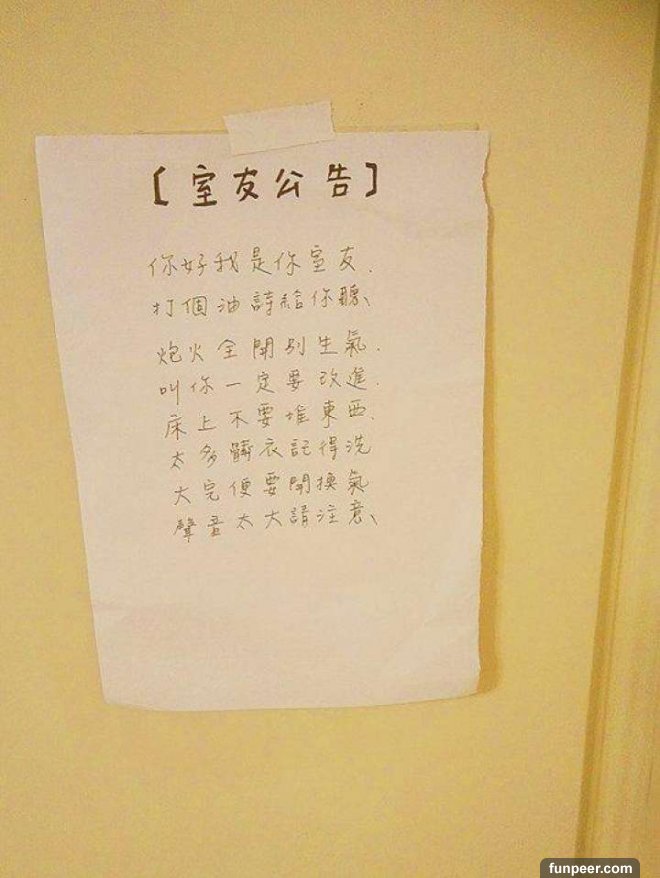 【室友公告】
你好我是你室友.
打個油詩給你聽、
炮火全開別生氣.
叫你一定要改進.
床上不要堆東西.
太多髒衣記得洗
大完便要開換氣
聲音太大請注意、
funpeer.com